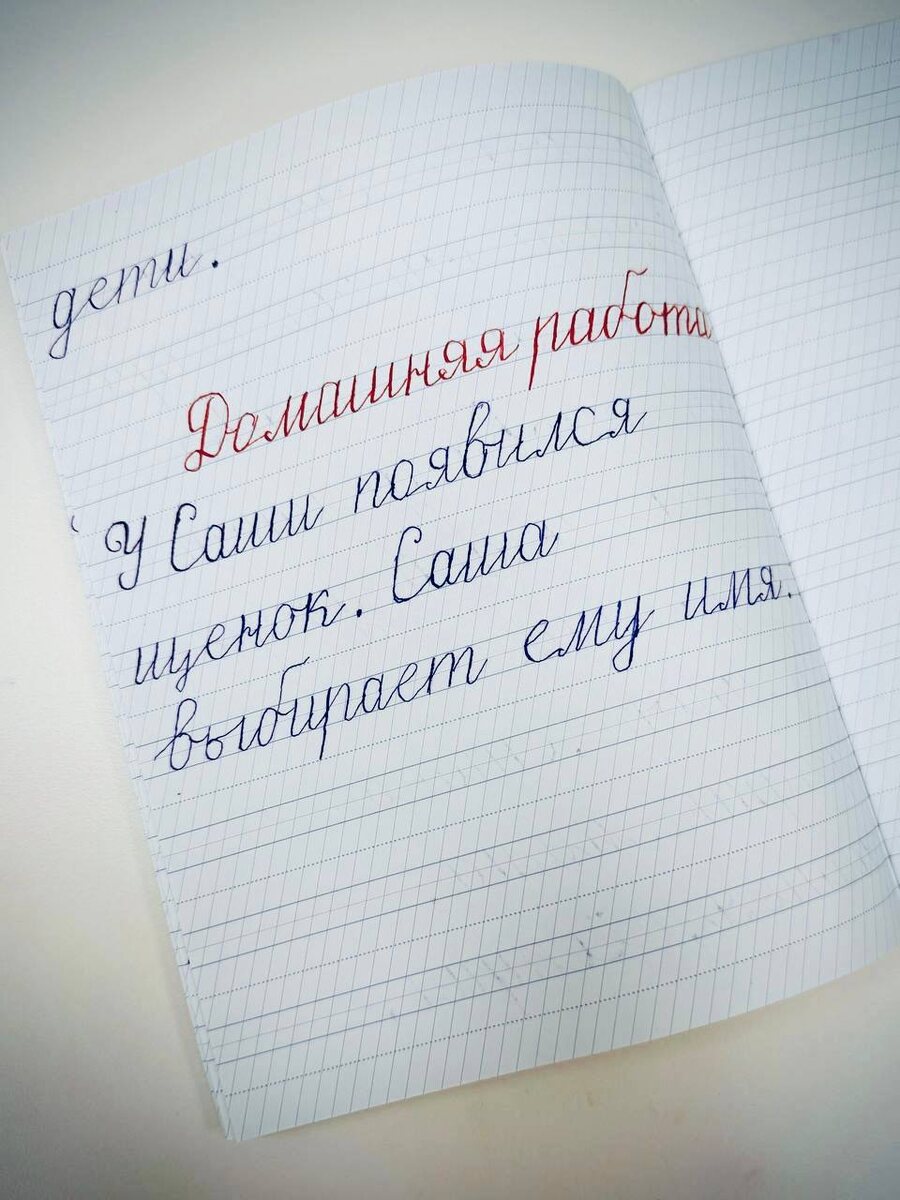 дети.
Домашняя работа.
У Саши появился
щенок. Саша
выбирает ему имя.